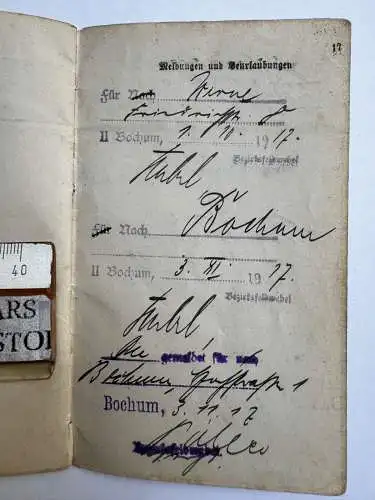 17
Meldungen und Beurlaubungen
Für Nach Werne
Friedrichstr. 8
II Bochum, 1. XI. 1917.
Bezirksfeldwebel
Für Nach Bochum
II Bochum, 3. XI 1917.
Bezirksfeldwebel
40
ARS
STO
gemeldet für nach
Bochum, 1
Bochum, 3.11.17
Bezirksfeldwebel